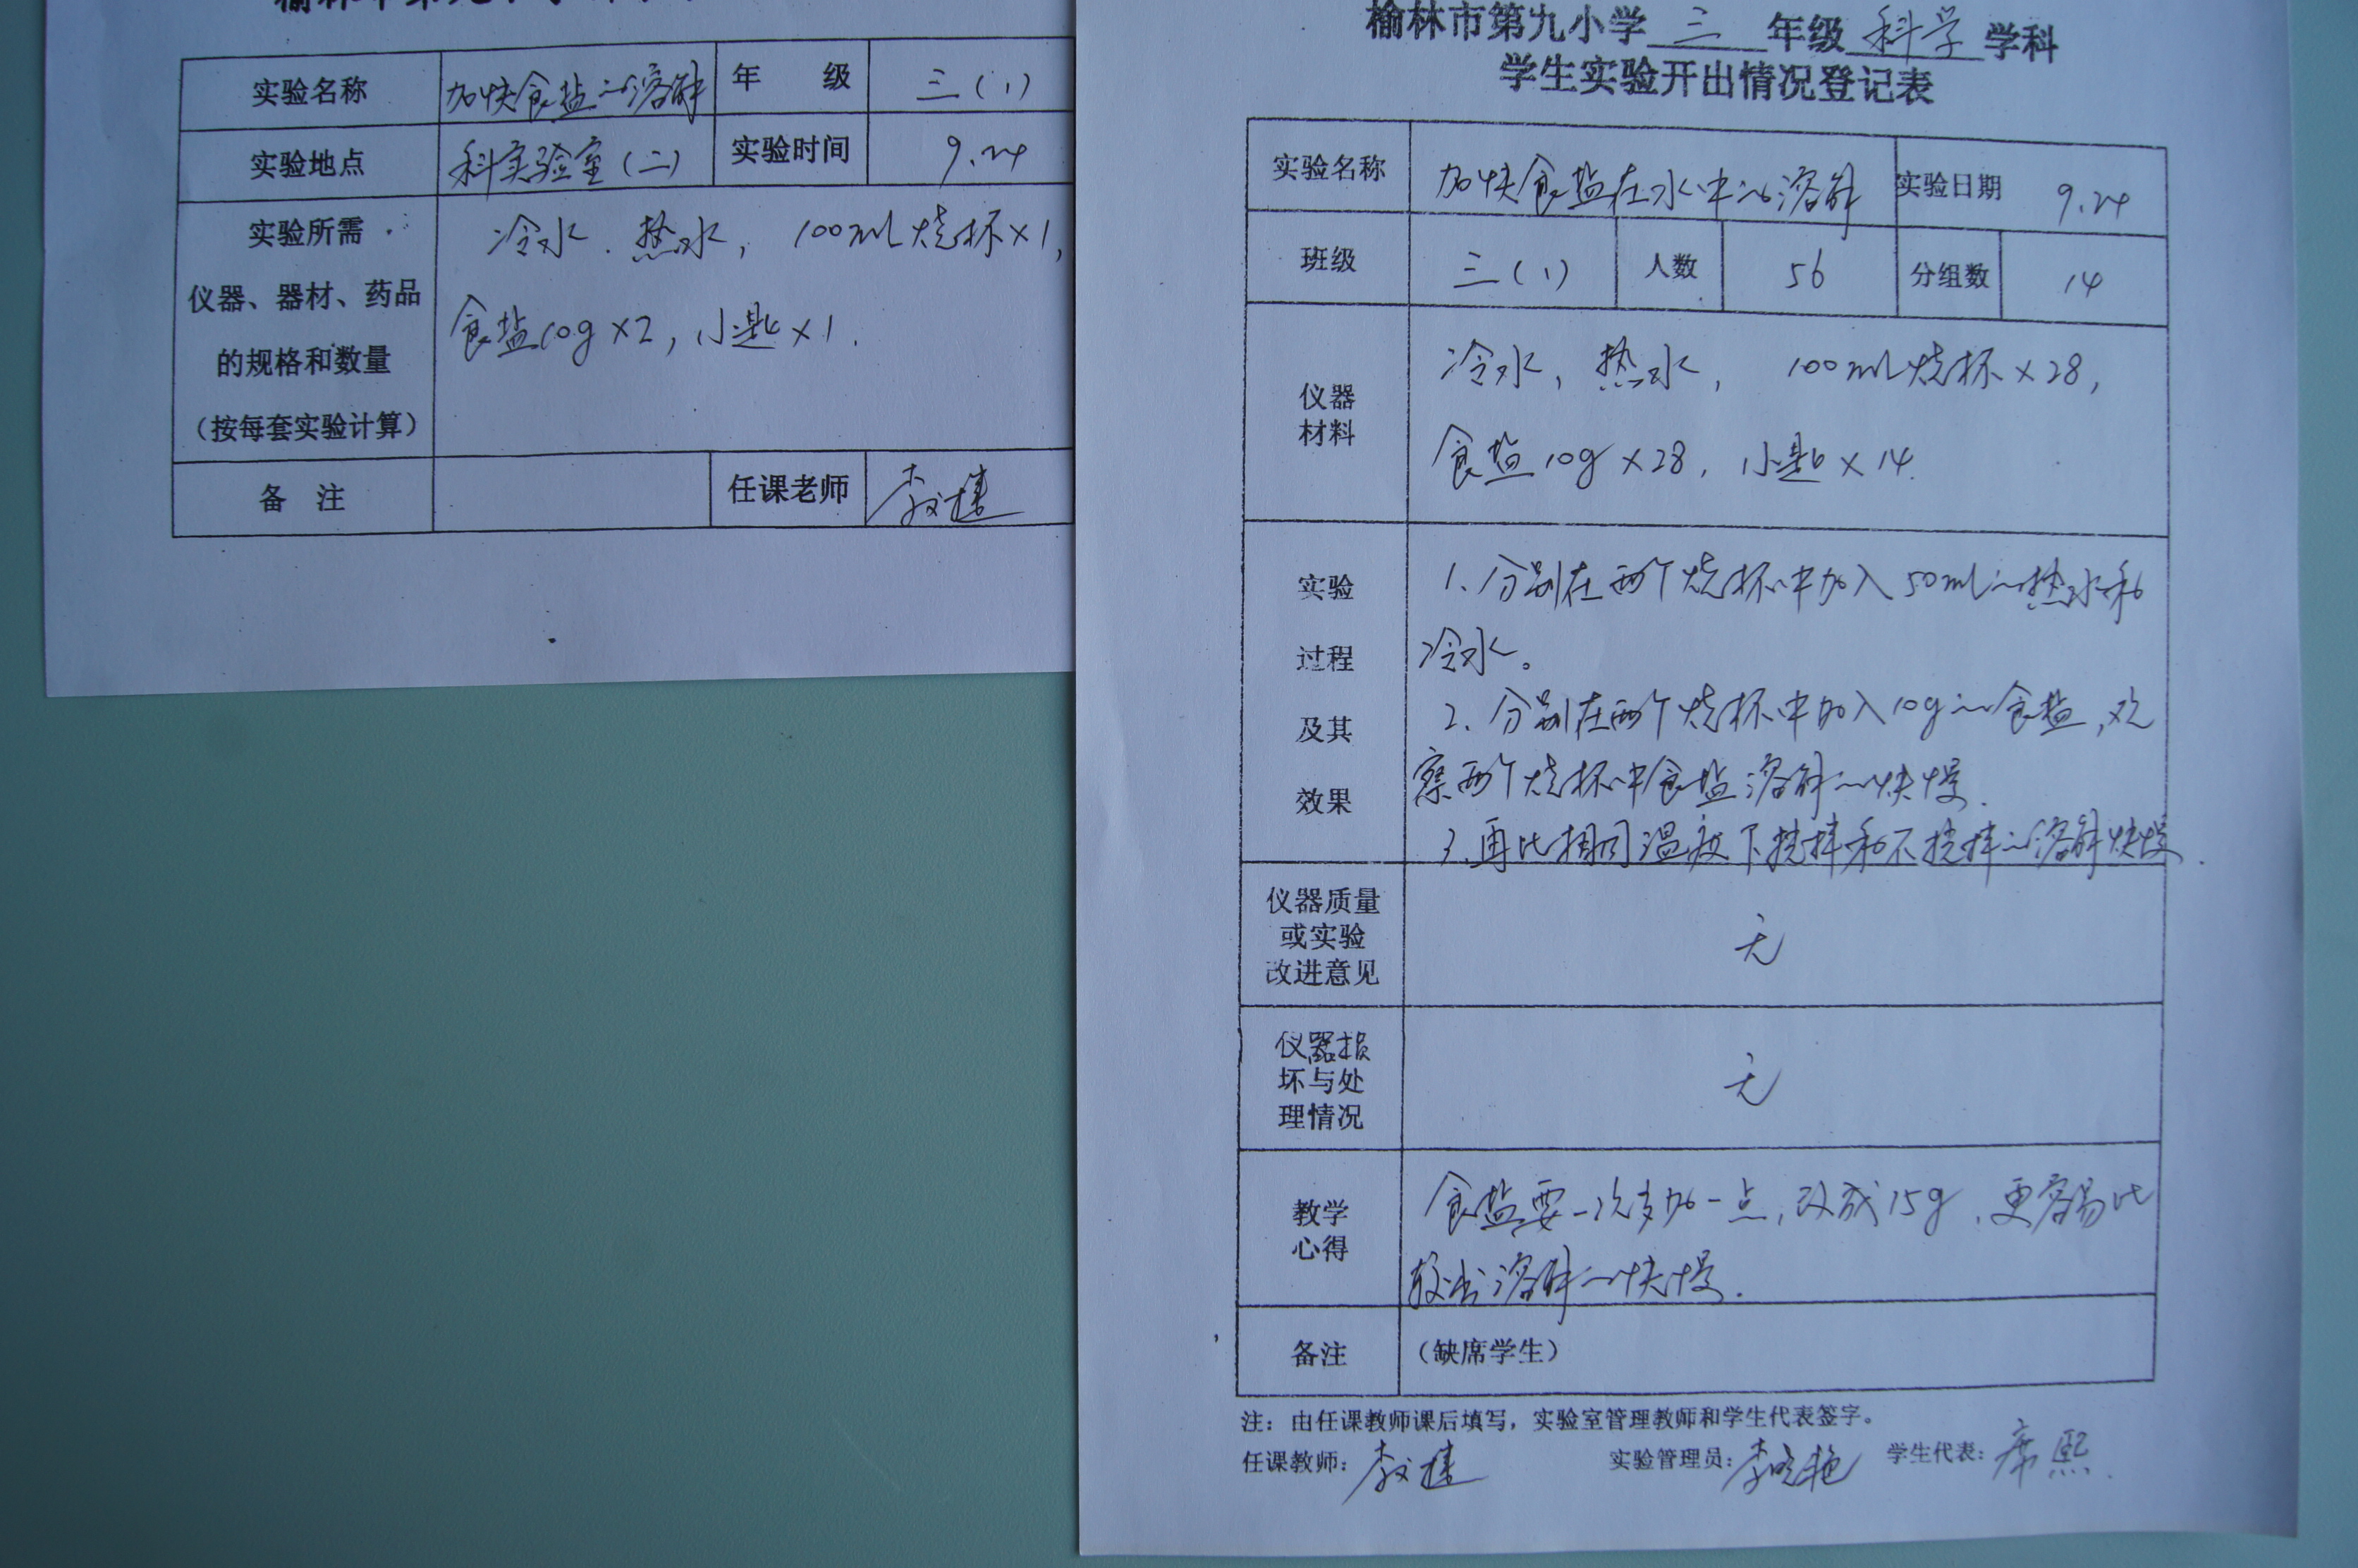 实验名称 加快食盐的溶解 年 级 三(1)
实验地点 科实验室(二) 实验时间 9.24
实验所需
仪器、器材、药品
的规格和数量
(按每套实验计算)
冷水.热水, 100ml烧杯×1,
食盐10g×2,小匙×1.
备 注 任课老师
榆林市第九小学 三 年级 科学 学科
学生实验开出情况登记表
实验名称 加快食盐在水中的溶解 实验日期 9.24
班级 三(1) 人数 56 分组数 14
仪器
材料
冷水,热水, 100ml烧杯×28,
食盐10g×28,小匙×14.
实验
过程
及其
效果
1、分别在两个烧杯中加入50ml的热水和
冷水。
2、分别在两个烧杯中加入10g的食盐,观
察两个烧杯中食盐溶解的快慢.
3、再比相同温度下搅拌和不搅拌的溶解快慢.
仪器质量
或实验
改进意见
无
仪器损
坏与处
理情况
无
教学
心得
食盐要一次多加一点,改成15g,更容易比
较出溶解的快慢.
备注 (缺席学生)
注：由任课教师课后填写，实验室管理教师和学生代表签字。
任课教师： 实验管理员：李晓艳 学生代表：席熙